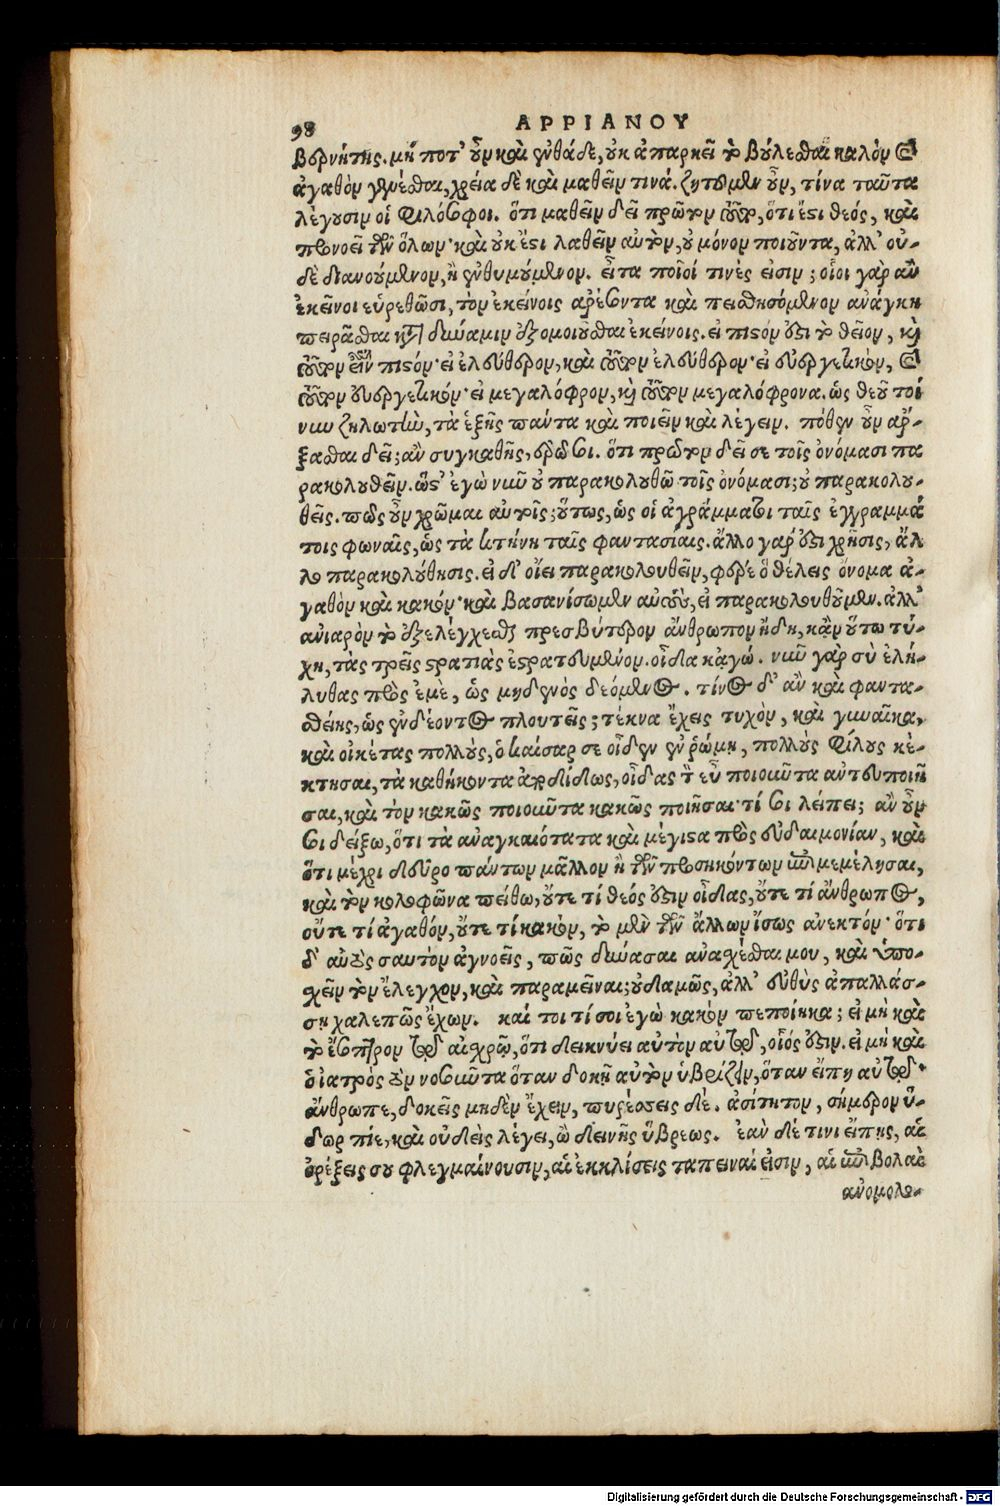 98 ΑΡΡΙΑΝΟΥ
βερνήτης. μή ποτ' οὖν καὶ ἐνθάδε, οὐκ ἀπαρκεῖ τὸ βούλεσθαι καλὸν καὶ
ἀγαθὸν γενέσθαι, χρεία δὲ καὶ μαθεῖν τινά. ζητοῦμεν οὖν, τίνα ταῦτα
λέγουσιν οἱ φιλόσοφοι. ὅτι μαθεῖν δεῖ πρῶτον τοῦτον, ὅτι ἔστι θεός, καὶ
προνοεῖ τῶν ὅλων· καὶ οὐκ ἔστι λαθεῖν αὐτὸν, οὐ μόνον ποιοῦντα, ἀλλ' οὐ-
δὲ διανούμενον, ἢ ἐνθυμούμενον. εἶτα ποῖοί τινές εἰσιν; οἷοι γὰρ ἂν
ἐκεῖνοι εὑρεθῶσι, τὸν ἐκείνοις ἀρέσοντα καὶ πεισθησόμενον ἀνάγκη
πειρᾶσθαι κατὰ δύναμιν ἐξομοιοῦσθαι ἐκείνοις. εἰ πιστόν ἐστι τὸ θεῖον, καὶ
τοῦτον εἶναι πιστόν· εἰ ἐλεύθερον, καὶ τοῦτον ἐλεύθερον· εἰ εὐεργετικὸν, καὶ
τοῦτον εὐεργετικόν· εἰ μεγαλόφρον, καὶ τοῦτον μεγαλόφρονα. ὡς θεοῦ τοί
νυν ζηλωτὴν, τὰ ἑξῆς πάντα καὶ ποιεῖν καὶ λέγειν. πόθεν οὖν ἄρ-
ξασθαι δεῖ; ἂν συγκαθῇς, ἐρῶ σοι. ὅτι πρῶτον δεῖ σε τοῖς ὀνόμασι πα
ρακολουθεῖν. ὥστ' ἐγὼ νῦν οὐ παρακολουθῶ τοῖς ὀνόμασι; οὐ παρακολου-
θεῖς. πῶς οὖν χρῶμαι αὐτοῖς; οὕτως, ὡς οἱ ἀγράμματοι ταῖς ἐγγραμμά
τοις φωναῖς, ὡς τὰ κτήνη ταῖς φαντασίαις. ἄλλο γάρ ἐστι χρῆσις, ἄλ
λο παρακολούθησις. εἰ δ' οἴει παρακολουθεῖν, φέρε ὃ θέλεις ὄνομα ἀ-
γαθὸν καὶ κακόν· καὶ βασανίσωμεν αὑτοὺς, εἰ παρακολουθοῦμεν. ἀλλ'
ἀνιαρὸν τὸ ἐξελέγχεσθαι πρεσβύτερον ἄνθρωπον ἤδη, κἂν οὕτω τύ-
χῃ, τὰς τρεῖς στρατιὰς ἐστρατευμένον. οἶδα κἀγώ. νῦν γὰρ σὺ ἐλή-
λυθας πρὸς ἐμὲ, ὡς μηδενὸς δεόμενος. τίνος δ' ἂν καὶ φαντα-
σθείης, ὡς ἐνδέοντος πλουτεῖς; τέκνα ἔχεις τυχὸν, καὶ γυναῖκα,
καὶ οἰκέτας πολλοὺς, ὁ καῖσαρ σε οἶδεν ἐν ῥώμῃ, πολλοὺς φίλους κέ-
κτησαι, τὰ καθήκοντα ἀποδίδως, οἶδας τὸν εὖ ποιοῦντα ἀντευποιῆ
σαι, καὶ τὸν κακῶς ποιοῦντα κακῶς ποιῆσαι· τί σοι λείπει; ἂν οὖν
σοι δείξω, ὅτι τὰ ἀναγκαιότατα καὶ μέγιστα πρὸς εὐδαιμονίαν, καὶ
ὅτι μέχρι δεῦρο πάντων μᾶλλον ἢ τῶν προσηκόντων ἐπιμεμέλησαι,
καὶ τὸν κολοφῶνα πείθω, οὔτε τί θεός ἐστιν οἶδας, οὔτε τί ἄνθρωπος,
οὔτε τί ἀγαθόν, οὔτε τί κακὸν, τὸ μὲν τῶν ἄλλων ἴσως ἀνεκτόν· ὅτι
δ' αὐτὸς σαυτὸν ἀγνοεῖς, πῶς δύνασαι ἀνασχέσθαι μου, καὶ ὑπο-
σχεῖν τὸν ἔλεγχον, καὶ παραμεῖναι; οὐδαμῶς, ἀλλ' εὐθὺς ἀπαλλάσ-
σῃ χαλεπῶς ἔχων. καί τοι τί σοι ἐγὼ κακὸν πεποίηκα; εἰ μὴ καὶ
τὸ ἔσοπτρον τῷ αἰσχρῷ, ὅτι δεικνύει αὐτὸν αὐτῷ, οἷός ἐστιν. εἰ μὴ καὶ
ὁ ἰατρὸς τὸν νοσοῦντα ὅταν δοκῇ αὐτὸν ὑβρίζειν, ὅταν εἴπῃ αὐτῷ·
ἄνθρωπε, δοκεῖς μηδὲν ἔχειν, πυρέσσεις δέ. ἀσίτησον, σήμερον ὕ-
δωρ πίε, καὶ οὐδεὶς λέγει, ὢ δεινῆς ὕβρεως. ἐὰν δέ τινι εἴπῃς, αἱ
ὀρέξεις σου φλεγμαίνουσιν, αἱ ἐκκλίσεις ταπειναί εἰσιν, αἱ ἐπιβολαὶ
ἀνομολο-
Digitalisierung gefördert durch die Deutsche Forschungsgemeinschaft - DFG